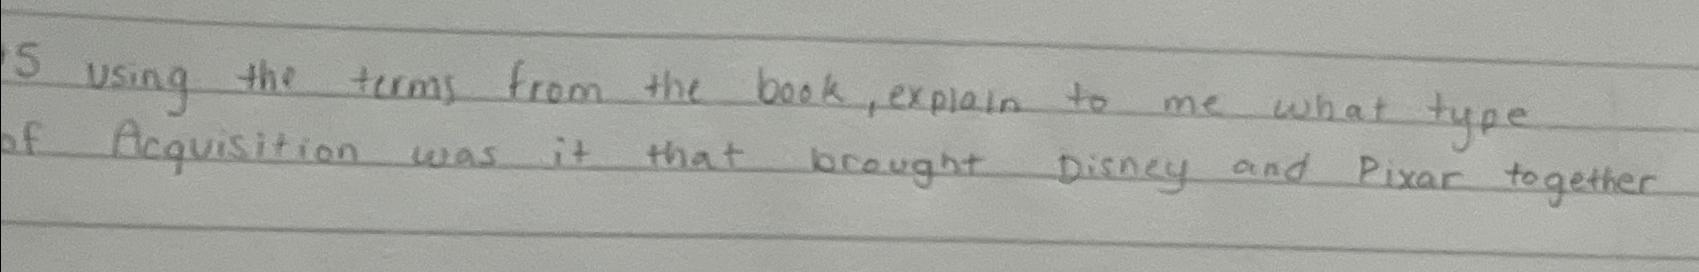 5 using the terms from the book, explain to me what type
of Acquisition was it that brought Disney and Pixar together